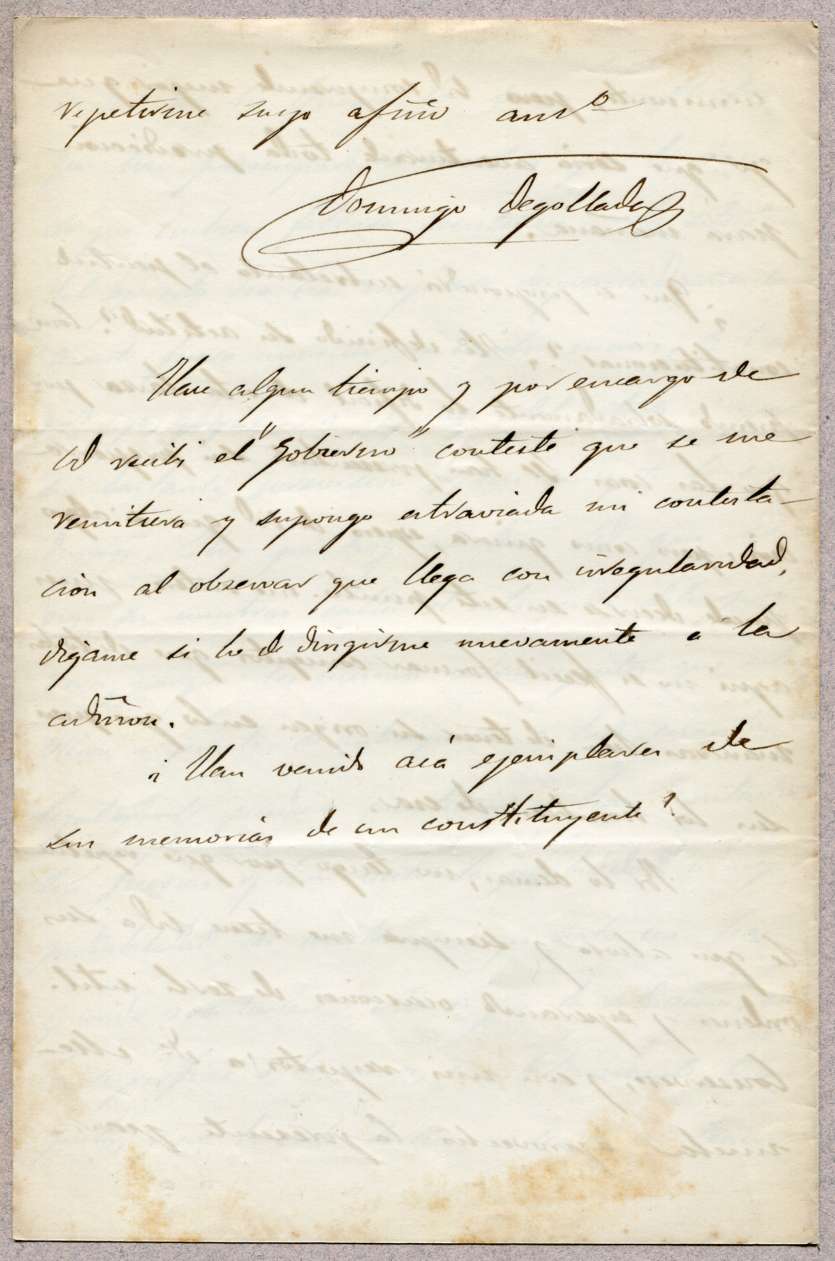 repetirme suyo afmo amgo
Domingo Degollada
Hace algun tiempo y por encargo de
Vd recibi el "Gobierno" contesté que se me
remitiera y supongo estraviada mi contesta-
ción al observar que llega con irregularidad,
digame si he de dirigirme nuevamente á la
admon.
¿ Han venido acá ejemplares de
sus memorias de un constituyente?